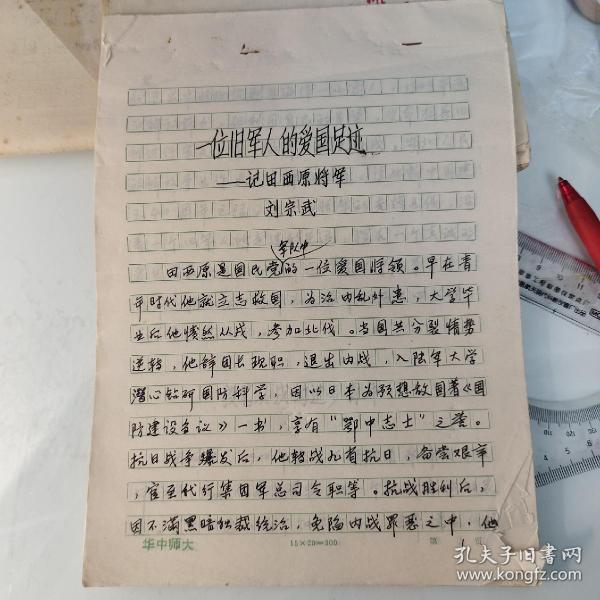 一位旧军人的爱国足迹
——记田西原将军
刘宗武
军队中
田西原是国民党的一位爱国将领。早在青
年时代他就立志救国,为治内乱外患,大学毕
业后他愤然从戎,参加北伐。当国共分裂情势
逆转,他辞团长现职,退出内战,入陆军大学
潜心钻研国防科学,因以日本为预想敌国著《国
防建设刍议》一书,享有“鄂中志士”之誉。
抗日战争爆发后,他转战九省抗日,备尝艰辛
,官至代行集团军总司令职等。抗战胜利后,
因不满黑暗独裁统治,免陷内战罪恶之中,他
华中师大
15×20=300
第 1 页
孔夫子旧书网
www.kongfz.com